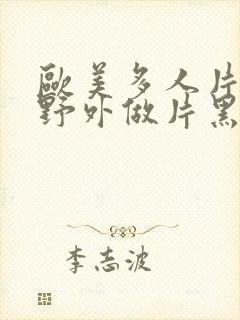 歐美多人片
野外做片黑
李志波